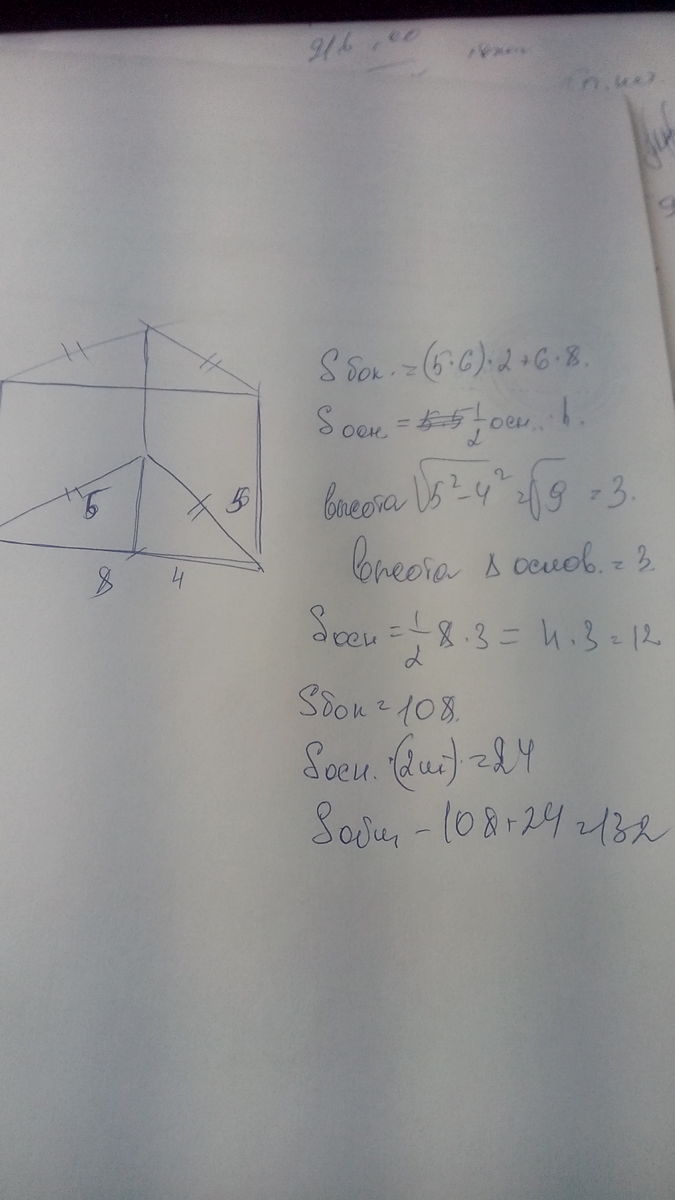 5
5
8
4
S бок. = (5·6)·2+6·8.
S осн = 1/2 осн. · h.
высота √5²-4² = √9 = 3.
Высота Δ основ. = 3
S осн = 1/2 8·3 = 4·3 = 12
S бок = 108.
S осн. ·(2шт)· = 24
S общ - 108+24 = 132